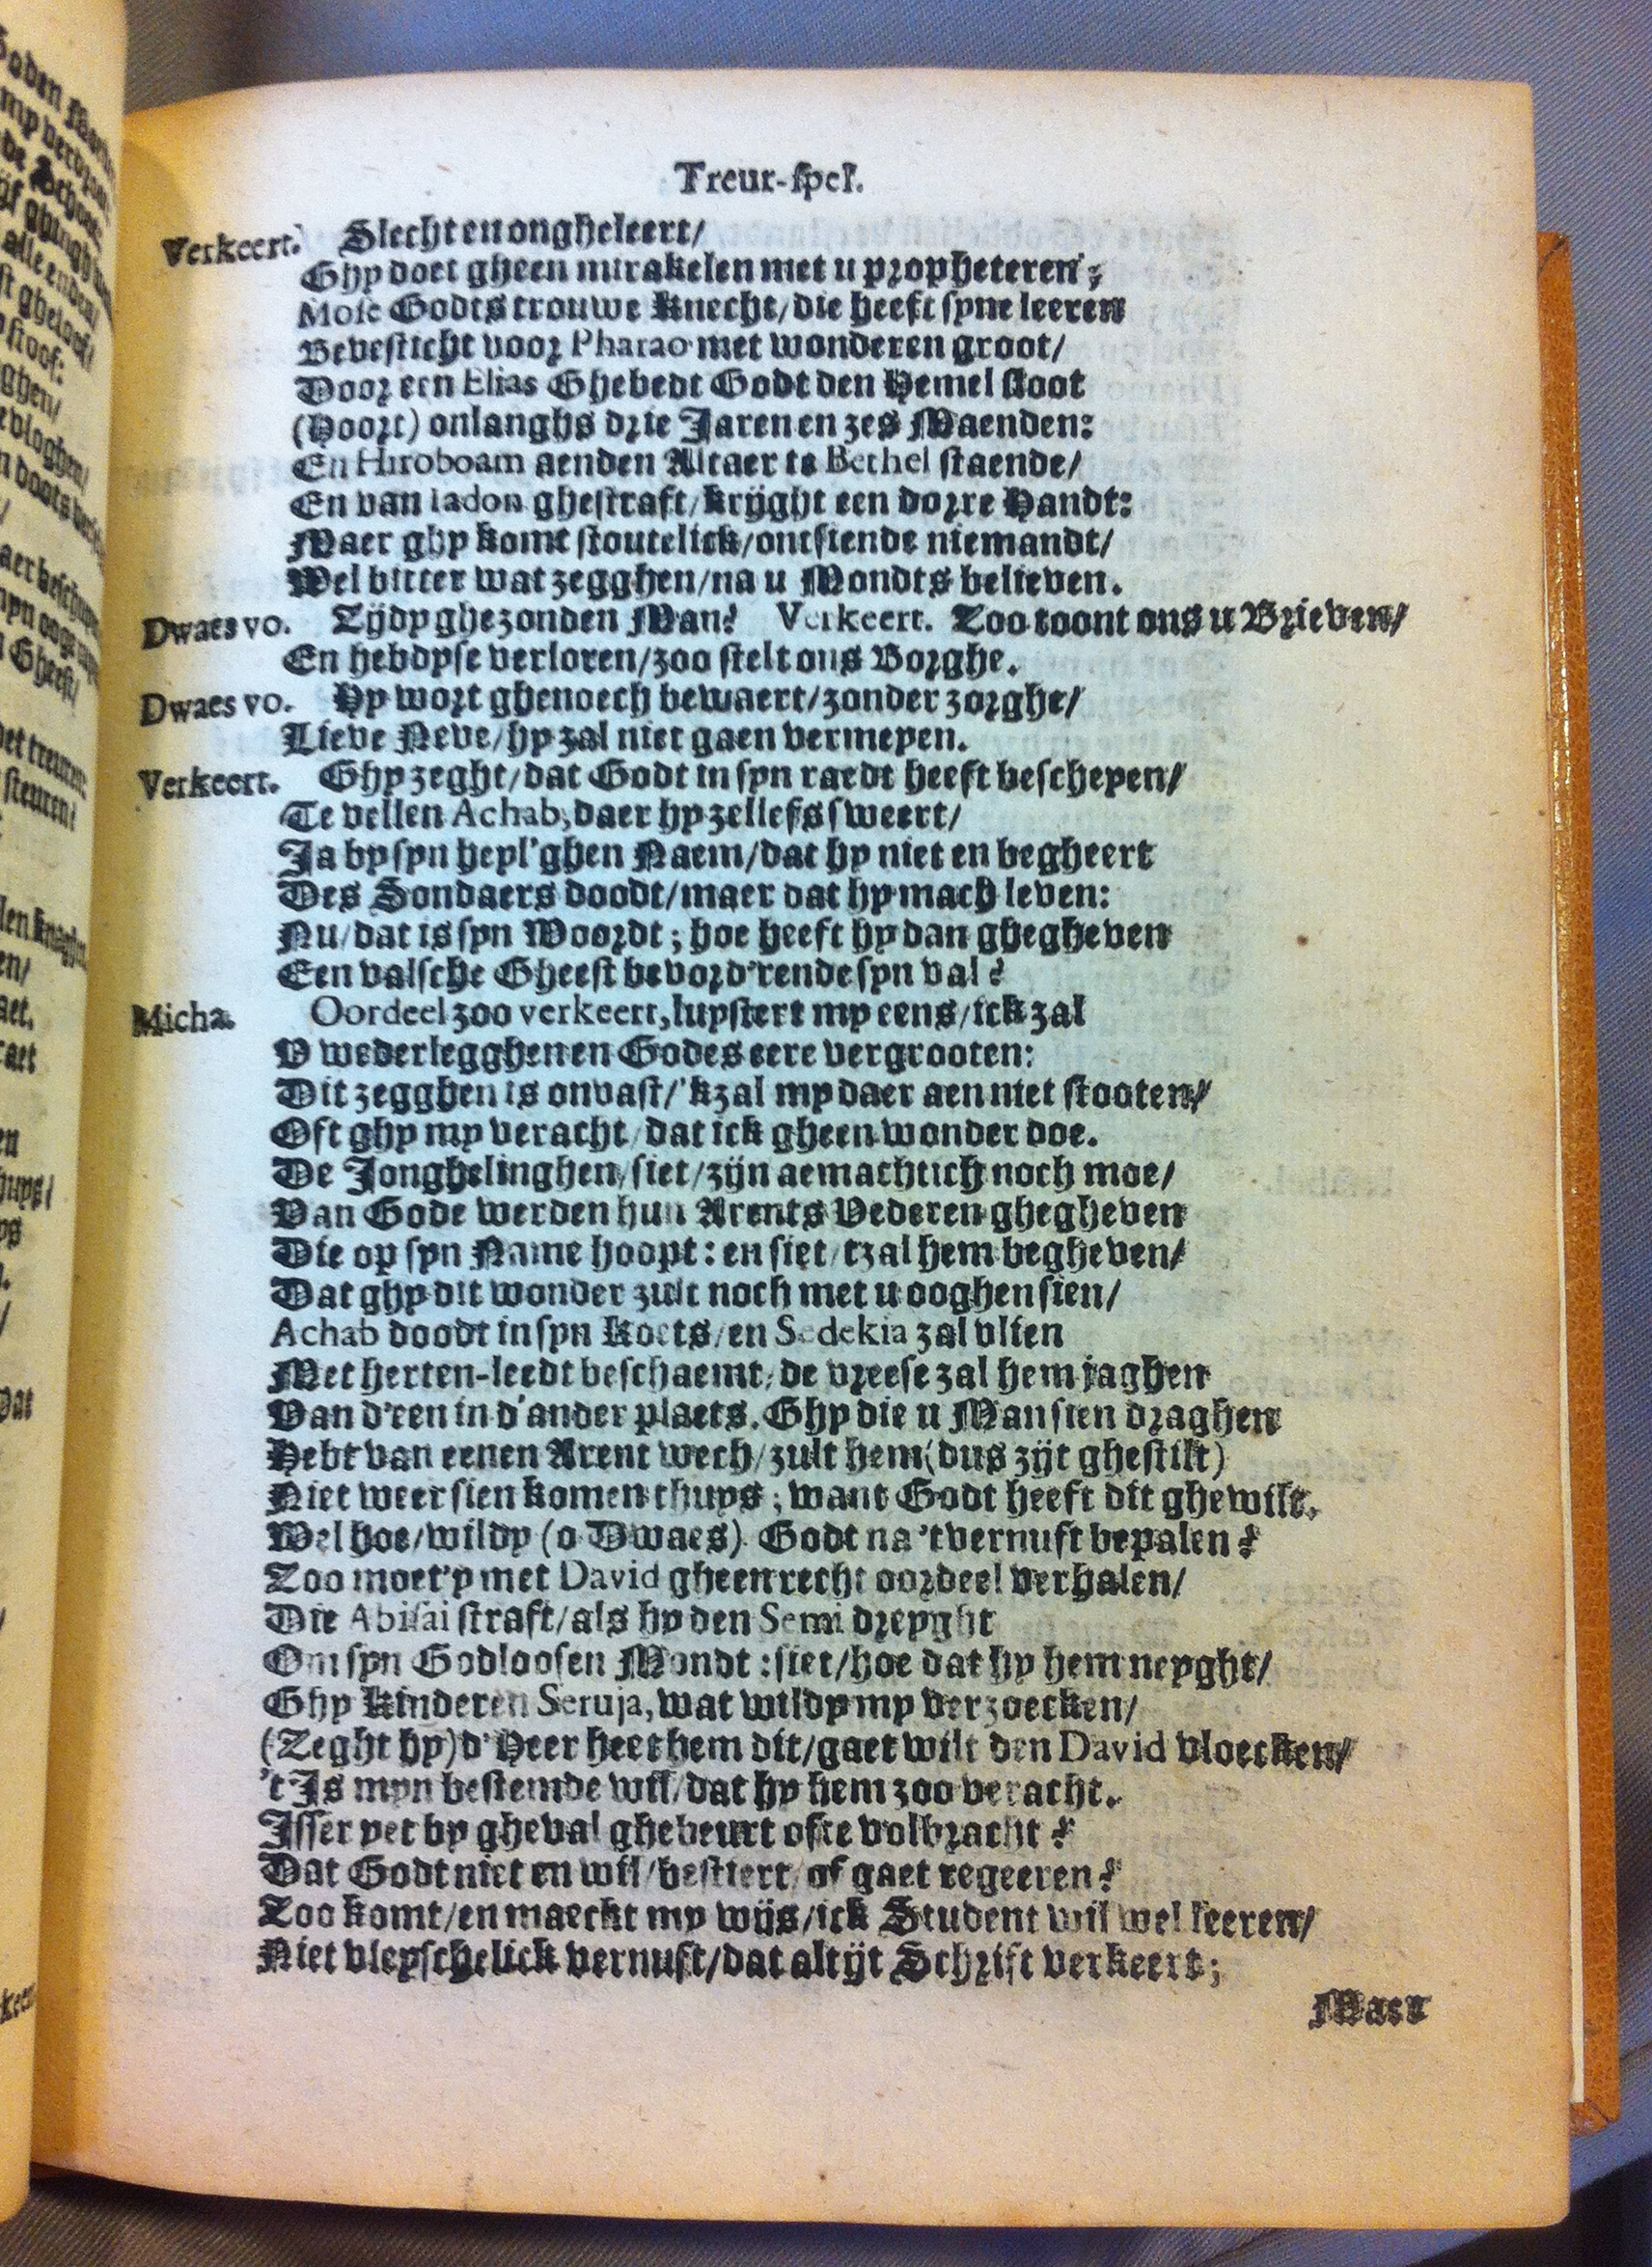 Treur-spel.
Verkeert. Slecht en ongheleert/
Ghy doet gheen mirakelen met u propheteren;
Mose Godts trouwe Knecht/die heeft syne leeren
Bevesticht voor Pharao met wonderen groot/
Door een Elias Ghebedt Godt den Hemel sloot
(Hoort) onlanghs drie Jaren en zes Maenden:
En Hiroboam aenden Altaer te Bethel staende/
En van Iadon ghestraft/krijght een dorre Handt:
Maer ghy komt stoutelick/ontsiende niemandt/
Wel bitter wat zegghen/na u Mondts believen.
Dwaes vo. Zijdy ghezonden Man? Verkeert. Zoo toont ons u Brieven/
En hebdyse verloren/zoo stelt ons Borghe.
Dwaes vo. Hy wort ghenoech bewaert/zonder zorghe/
Lieve Neve/hy zal niet gaen vermeyen.
Verkeert. Ghy zeght/dat Godt in syn raedt heeft bescheyen/
Te vellen Achab, daer hy zellefs sweert/
Ja by syn heyl'ghen Naem/dat hy niet en begheert
Des Sondaers doodt/maer dat hy mach leven:
Nu/dat is syn Woordt; hoe heeft hy dan ghegheven
Een valsche Gheest bevord'rende syn val?
Micha. Oordeel zoo verkeert, luystert my eens/ick zal
U wederlegghen en Godes eere vergrooten:
Dit zegghen is onvast/'kzal my daer aen niet stooten/
Oft ghy my veracht/dat ick gheen wonder doe.
De Jonghelinghen/siet/zijn aemachtich noch moe/
Van Gode werden hun Arents Vederen ghegheven
Die op syn Name hoopt: en siet/tzal hem begheven/
Dat ghy dit wonder zult noch met u ooghen sien/
Achab doodt in syn Koets/en Sedekia zal vlien
Met herten-leedt beschaemt/de vreese zal hem jaghen
Van d'een in d'ander plaets. Ghy die u Man sien draghen
Hebt van eenen Arent wech/zult hem (dus zijt ghestilt)
Niet weer sien komen thuys; want Godt heeft dit ghewilt.
Wel hoe/wildy (o Dwaes) Godt na 't vernuft bepalen?
Zoo moet'y met David gheen recht oordeel verhalen/
Die Abisai straft/als hy den Semi dreyght
Om syn Godloosen Mondt: siet/hoe dat hy hem neyght/
Ghy Kinderen Seruja, wat wildy my verzoecken/
(Zeght hy) d'Heer heet hem dit/gaet wilt den David vloecken/
't Is myn bestemde wil/dat hy hem zoo veracht.
Isser yet by gheval ghebeurt ofte volbracht?
Dat Godt niet en wil/bestiert/of gaet regeeren?
Zoo komt/en maeckt my wijs/ick Student wil wel leeren/
Niet vleyschelick vernuft/dat altijt Schrift verkeert;
Maer